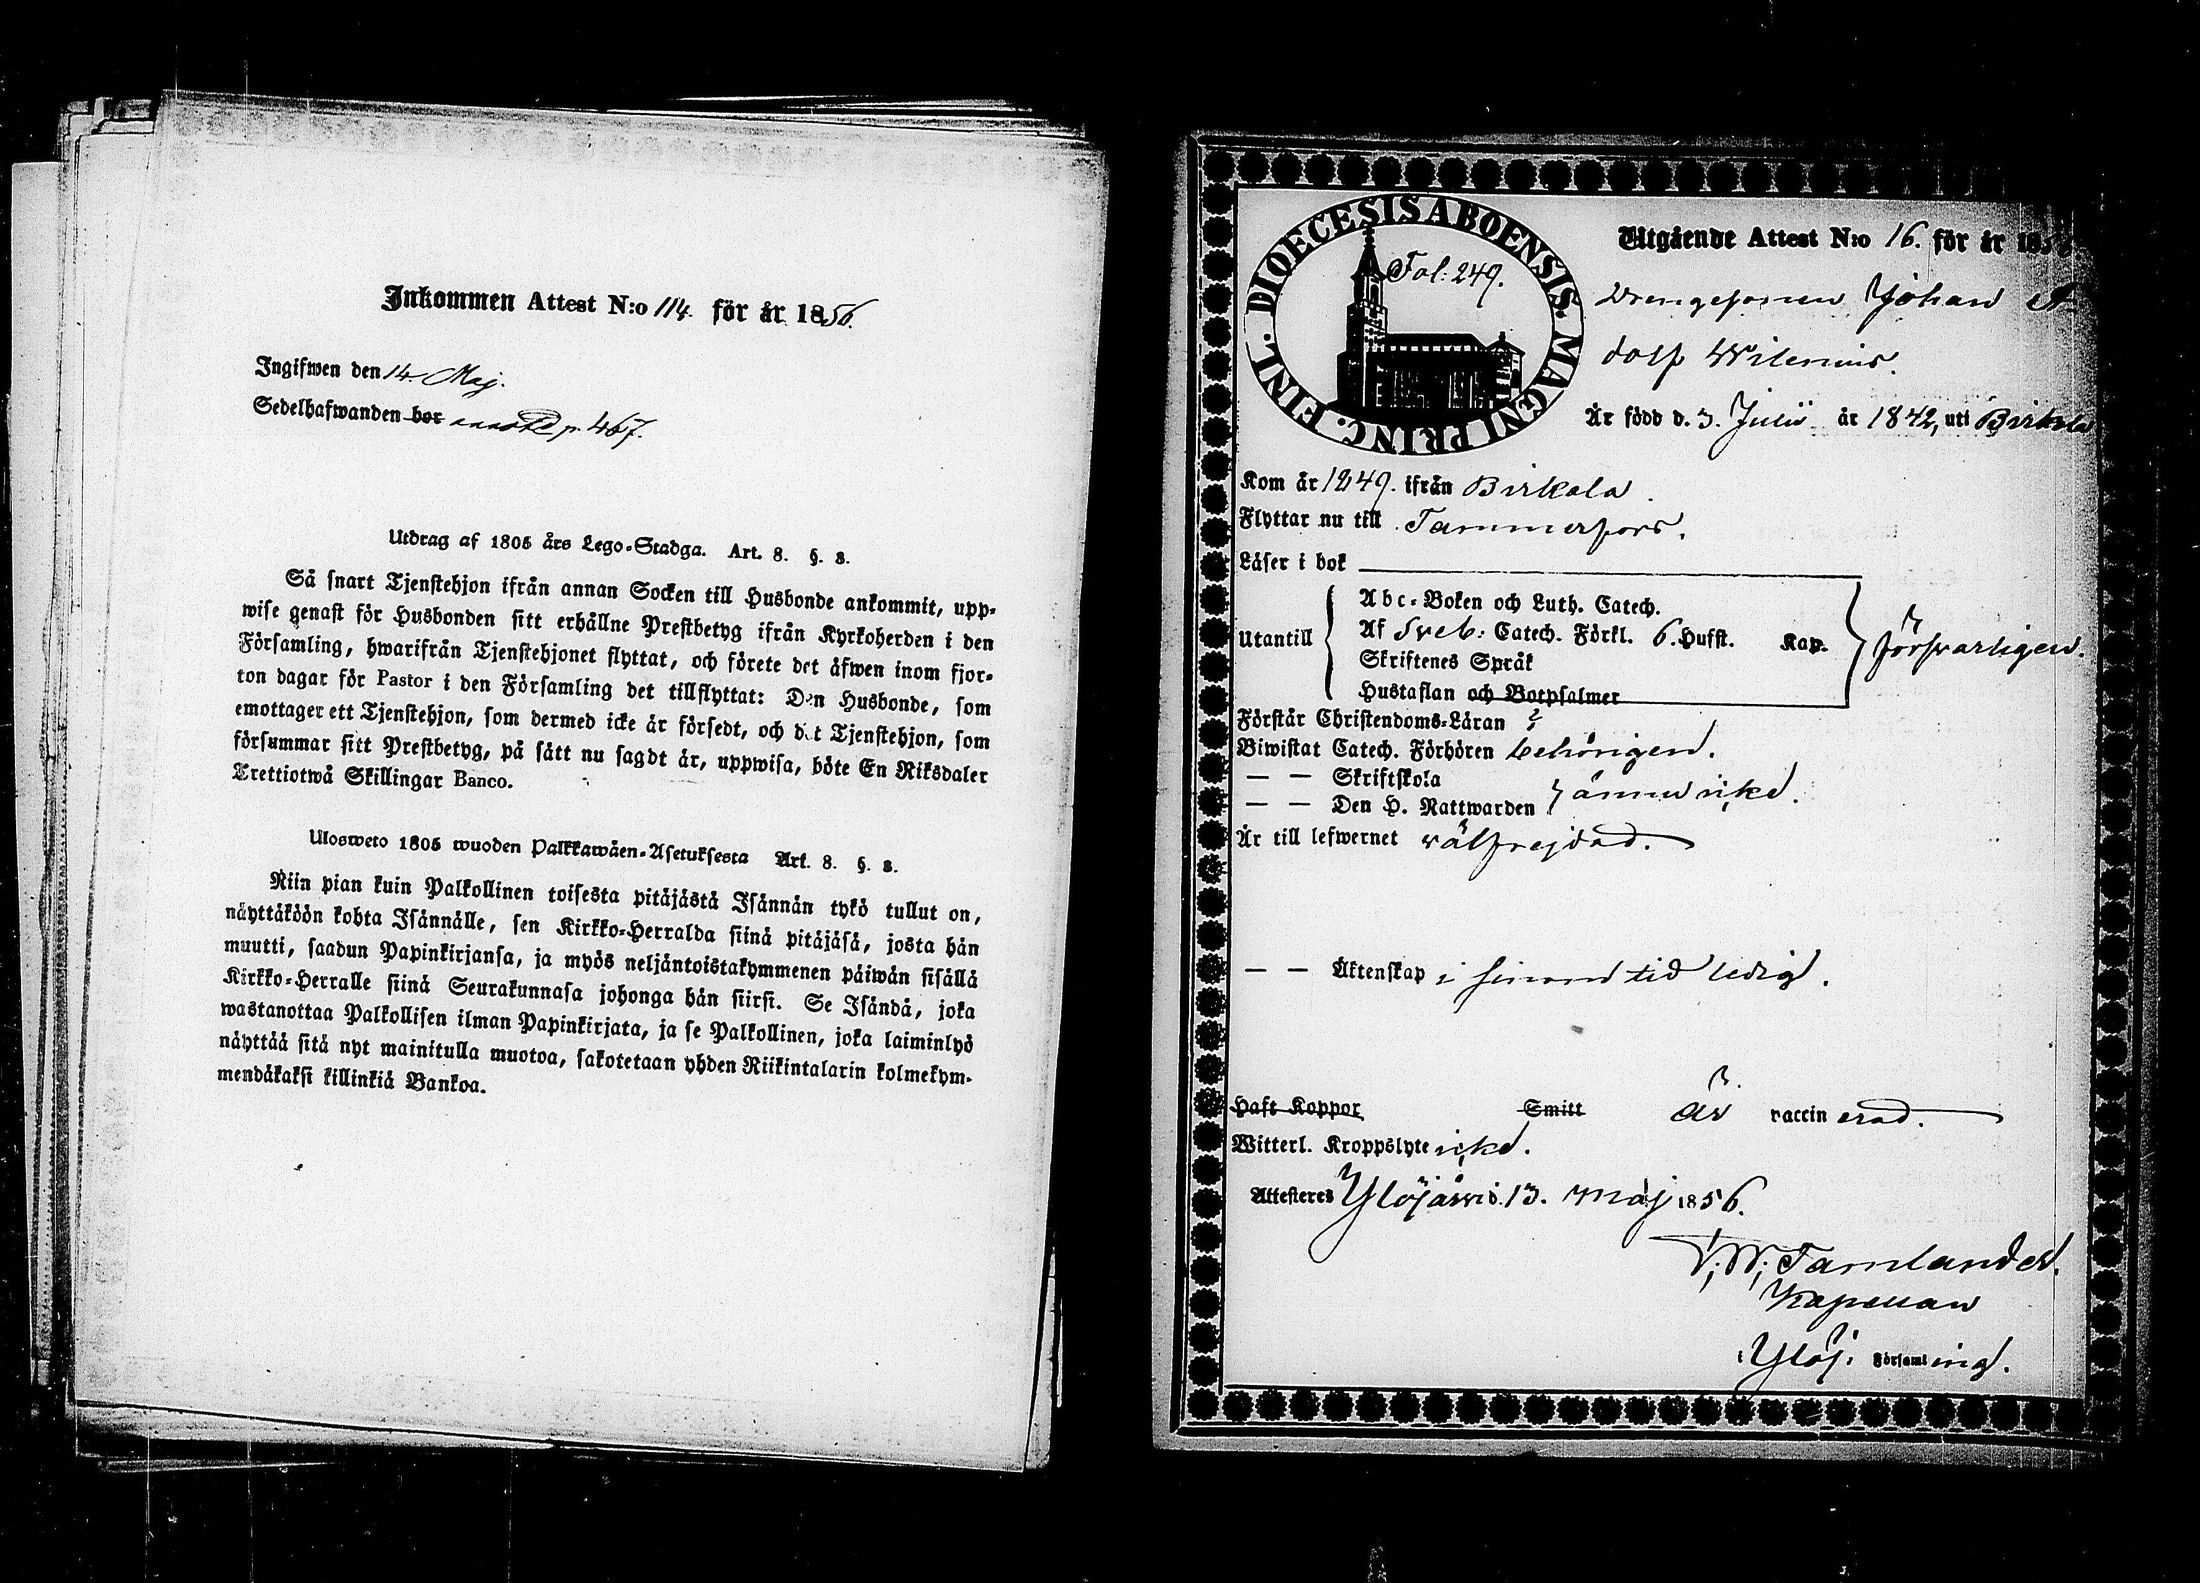 Inkommen Attest N:o 114. för år 1856.
Ingifwen den 14. Maj.
Sedelhafwanden bor p. 467.
Utdrag af 1805 års Lego-Stadga. Art. 8. §. 3.
Så snart Tjenstehjon ifrån annan Socken till Husbonde ankommit, upp-
wise genast för Husbonden sitt erhållne Prestbetyg ifrån Kyrkoherden i den
Församling, hwarifrån Tjenstehjonet flyttat, och förete det äfwen inom fjor-
ton dagar för Pastor i den Församling det tillflyttat: Den Husbonde, som
emottager ett Tjenstehjon, som dermed icke är försedt, och det Tjenstehjon, som
försummar sitt Prestbetyg, på sätt nu sagdt är, uppwisa, böte En Riksdaler
Trettiotwå Skillingar Banco.
Ulosweto 1805 wuoden Palkkawäen-Asetuksesta Art. 8. §. 3.
Niin pian kuin Palkollinen toisesta pitäjästä Isännän tykö tullut on,
näyttäköön kohta Isännälle, sen Kirkko-Herralda siinä pitäjäsä, josta hän
muutti, saadun Papinkirjansa, ja myös neljäntoistakymmenen päiwän sisällä
Kirkko-Herralle siinä Seurakunnasa johonga hän siirsi. Se Isändä, joka
wastanottaa Palkollisen ilman Papinkirjata, ja se Palkollinen, joka laiminlyö
näyttää sitä nyt mainitulla muotoa, sakotetaan yhden Riikintalarin kolmekym-
mendäkaksi killinkiä Bankoa.
DIOECESIS ABOENSIS. MAGNI PRINC. FINL.
Fol: 249.
Utgående Attest N:o 16. för år 1856
Drengesonen Johan A-
dolf Wilenius.
Är född d. 3. Julii år 1842, uti Birkala
Kom år 1849. ifrån Birkala.
Flyttar nu till Tammerfors.
Läser i bok
Utantill
Abc-Boken och Luth. Catech.
Af Sveb: Catech. Förkl. 6. Hufst. Kap.
Skriftenes Språk
Hustaflan och Botpsalmer
försvarligen.
Förstår Christendoms-Läran
Biwistat Catech. Förhören behörigen.
— — Skriftskola
— — Den H. Nattwarden ännu icke.
Är till lefwernet välfrejdad.
— — Äktenskap i sinom tid ledig.
Haft Koppor Smitt är vaccin erad.
Witterl. Kroppslyte icke.
Attesteres Ylöjärvi d. 13. Maj 1856.
V. W. Tamlander.
Kapellan
i Ylöj. Församling.